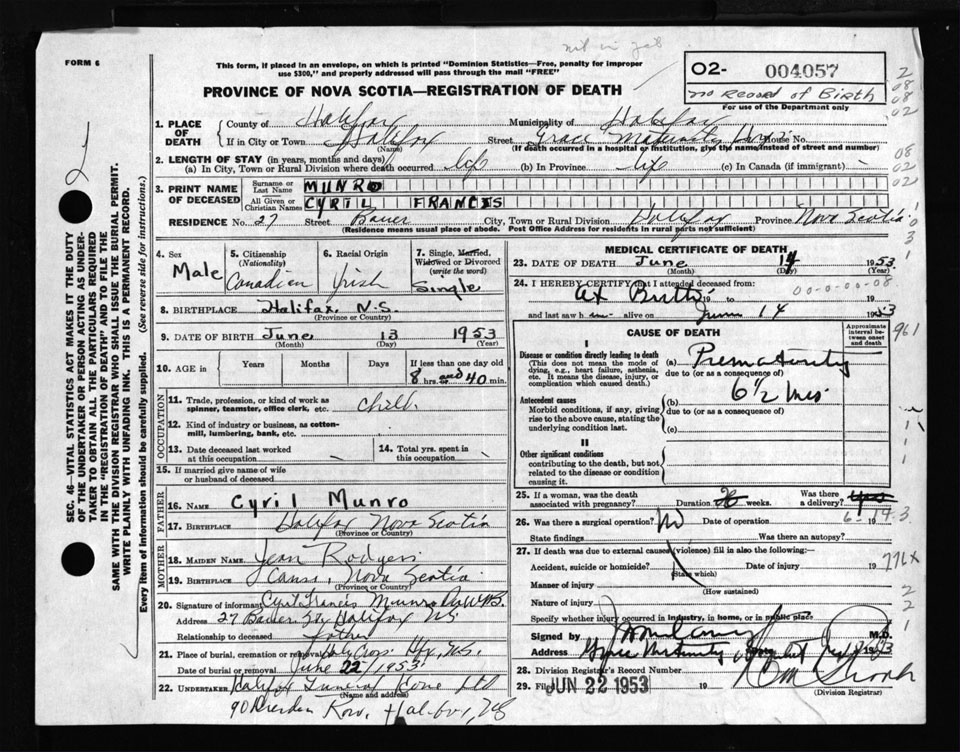 nil in get
FORM 6
This form, if placed in an envelope, on which is printed "Dominion Statistics—Free, penalty for improper
use $300," and properly addressed will pass through the mail "FREE"
PROVINCE OF NOVA SCOTIA—REGISTRATION OF DEATH
O2- 004057
no Record of Birth
For use of the Department only
SEC. 46—VITAL STATISTICS ACT MAKES IT THE DUTY
OF THE UNDERTAKER OR PERSON ACTING AS UNDER-
TAKER TO OBTAIN ALL THE PARTICULARS REQUIRED
IN THE "REGISTRATION OF DEATH" AND TO FILE THE
SAME WITH THE DIVISION REGISTRAR WHO SHALL ISSUE THE BURIAL PERMIT.
WRITE PLAINLY WITH UNFADING INK. THIS IS A PERMANENT RECORD.
Every item of information should be carefully supplied. (See reverse side for instructions.)
1. PLACE OF DEATH County of Halifax Municipality of Halifax
If in City or Town Halifax Street Grace Maternity House No.
(Name) (If death occurred in a hospital or institution, give the name instead of street and number)
2. LENGTH OF STAY (in years, months and days)
(a) In City, Town or Rural Division where death occurred life (b) In Province life (c) In Canada (if immigrant) -
3. PRINT NAME OF DECEASED Surname or Last Name MUNRO
All Given or Christian Names CYRIL FRANCIS
RESIDENCE No. 27 Street Bauer City, Town or Rural Division Halifax Province Nova Scotia
(Residence means usual place of abode. Post Office Address for residents in rural parts not sufficient)
4. Sex Male
5. Citizenship (Nationality) Canadian
6. Racial Origin Irish
7. Single, Married, Widowed or Divorced (write the word) Single
8. BIRTHPLACE Halifax, N.S.
(Province or Country)
9. DATE OF BIRTH June 13 1953
(Month) (Day) (Year)
10. AGE in Years Months Days If less than one day old
8 hrs. and 40 min.
OCCUPATION
11. Trade, profession, or kind of work as
spinner, teamster, office clerk, etc. Child.
12. Kind of industry or business, as cotton-
mill, lumbering, bank, etc.
13. Date deceased last worked
at this occupation
14. Total yrs. spent in
this occupation
15. If married give name of wife
or husband of deceased
FATHER
16. NAME Cyril Munro
17. BIRTHPLACE Halifax Nova Scotia
(Province or Country)
MOTHER
18. MAIDEN NAME Jean Rodgers
19. BIRTHPLACE Canso, Nova Scotia
(Province or Country)
20. Signature of informant Cyril Francis Munro
Address 27 Bauer St, Halifax NS
Relationship to deceased father
21. Place of burial, cremation or removal Holy Cross Hfx, N.S.
Date of burial or removal June 22/1953
22. UNDERTAKER Halifax Funeral Home Ltd
(Name and address)
90 Dresden Row, Halifax, NS
MEDICAL CERTIFICATE OF DEATH
23. DATE OF DEATH June 14 1953
(Month) (Day) (Year)
24. I HEREBY CERTIFY that I attended deceased from:
at Birth 19 to 19
00-0-00-08
and last saw h im alive on June 14 1953
CAUSE OF DEATH
Approximate interval between onset and death
I
Disease or condition directly leading to death
(This does not mean the mode of
dying, e.g., heart failure, asthenia,
etc. It means the disease, injury, or
complication which caused death.)
(a) Prematurity
due to (or as a consequence of)
Antecedent causes
Morbid conditions, if any, giving
rise to the above cause, stating the
underlying condition last.
(b) 6½ mos
due to (or as a consequence of)
(c)
II
Other significant conditions
contributing to the death, but not
related to the disease or condition
causing it.
25. If a woman, was the death
associated with pregnancy? Duration 26 weeks. Was there
a delivery? yes
26. Was there a surgical operation? No Date of operation 19
State findings Was there an autopsy?
27. If death was due to external causes (violence) fill in also the following:—
Accident, suicide or homicide? Date of injury 19
(State which)
Manner of injury
(How sustained)
Nature of injury
Specify whether injured in industry, in home, or in public place
Signed by M.D.
Address Grace Maternity
28. Division Registrar's Record Number
29. Filed JUN 22 1953 19
(Division Registrar)
961
776X